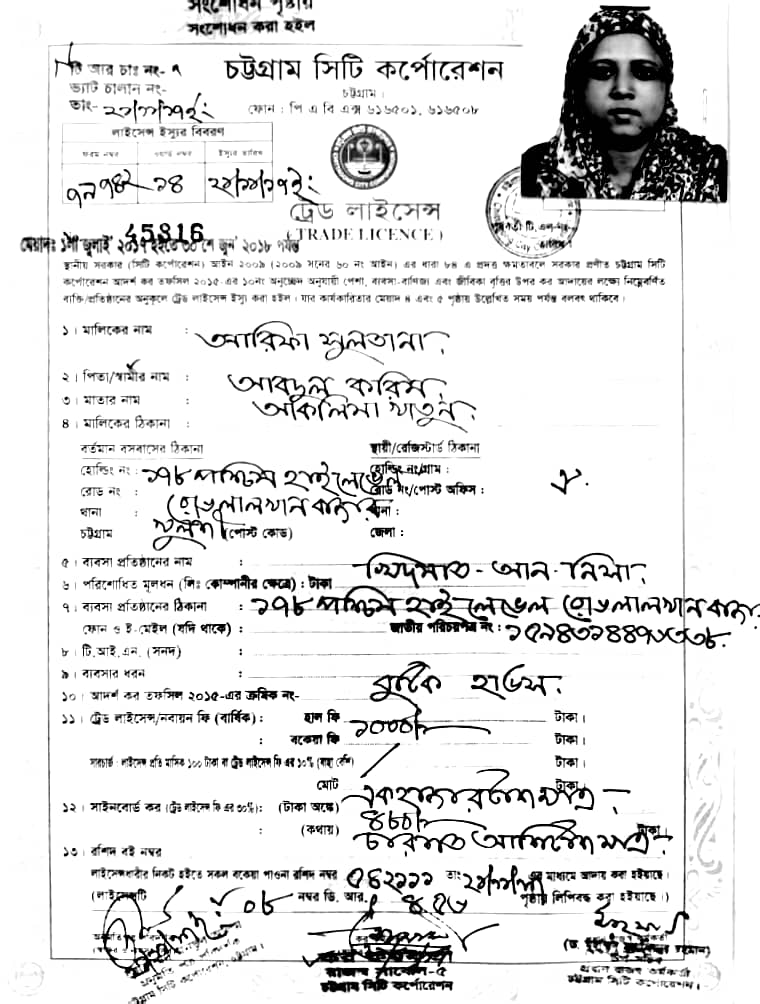 সংশোধন পৃষ্ঠায়
সংশোধন করা হইল
টি আর চাঃ নং- ৭
ভ্যাট চালান নং-
তাং-
চট্টগ্রাম সিটি কর্পোরেশন
চট্টগ্রাম।
ফোন : পি এ বি এক্স ৬১৬৫০১, ৬১৬৫০৮
লাইসেন্স ইস্যুর বিবরণ
ফরম নম্বর ওয়ার্ড নম্বর ইস্যুর তারিখ
১৪
ট্রেড লাইসেন্স
(TRADE LICENCE)
45816
মেয়াদঃ ১লা জুলাই' ২০১৭ হইতে ৩০ শে জুন' ২০১৮ পর্যন্ত
স্থানীয় সরকার (সিটি কর্পোরেশন) আইন ২০০৯ (২০০৯ সনের ৬০ নং আইন) এর ধারা ৮৪ এ প্রদত্ত ক্ষমতাবলে সরকার প্রণীত চট্টগ্রাম সিটি
কর্পোরেশন আদর্শ কর তফসিল ২০১৫-এর ১০নং অনুচ্ছেদ অনুযায়ী পেশা, ব্যবসা-বাণিজ্য এবং জীবিকা বৃত্তির উপর কর আদায়ের লক্ষ্যে নিম্নেবর্ণিত
ব্যক্তি/প্রতিষ্ঠানের অনুকূলে ট্রেড লাইসেন্স ইস্যু করা হইল। যার কার্যকারিতার মেয়াদ ৪ এবং ৫ পৃষ্ঠায় উল্লেখিত সময় পর্যন্ত বলবৎ থাকিবে।
১। মালিকের নাম : আরিফা সুলতানা
২। পিতা/স্বামীর নাম : আবদুল করিম
৩। মাতার নাম : আকলিমা খাতুন
৪। মালিকের ঠিকানা :
বর্তমান বসবাসের ঠিকানা স্থায়ী/রেজিস্টার্ড ঠিকানা
হোল্ডিং নং : ১৭৮ পশ্চিম হাইলেভেল হোল্ডিং নং/গ্রাম :
রোড নং : রোড লালখান বাজার রোড নং/পোস্ট অফিস : ঐ
থানা : খুলশী থানা :
চট্টগ্রাম (পোস্ট কোড) জেলা :
৫। ব্যবসা প্রতিষ্ঠানের নাম : খিদমাত-আন-নিসা
৬। পরিশোধিত মূলধন (লিঃ কোম্পানীর ক্ষেত্রে) : টাকা
৭। ব্যবসা প্রতিষ্ঠানের ঠিকানা : ১৭৮ পশ্চিম হাই লেভেল রোড লালখান বাজার
ফোন ও ই-মেইল (যদি থাকে) : জাতীয় পরিচয়পত্র নং :
৮। টি.আই.এন. (সনদ) :
৯। ব্যবসার ধরন : বুটিক হাউস
১০। আদর্শ কর তফসিল ২০১৫-এর ক্রমিক নং-
১১। ট্রেড লাইসেন্স/নবায়ন ফি (বার্ষিক) : হাল ফি ১০০০/- টাকা।
: বকেয়া ফি টাকা।
সারচার্জ : লাইসেন্স প্রতি মাসিক ১০০ টাকা বা ট্রেড লাইসেন্স ফি এর ১০% (যাহা বেশি) টাকা।
মোট টাকা।
১২। সাইনবোর্ড কর (ট্রেড লাইসেন্স ফি এর ৩০%) : (টাকা অঙ্কে) একহাজার টাকা মাত্র
: (কথায়) ৪৮০/- চারশত আশি টাকা মাত্র টাকা।
১৩। রশিদ বই নম্বর
লাইসেন্সধারীর নিকট হইতে সকল বকেয়া পাওনা রশিদ নম্বর ৫৪২১১১ তাং এর মাধ্যমে আদায় করা হইয়াছে।
(লাইসেন্সটি ০৮ নম্বর ডি. আর. পৃষ্ঠায় লিপিবদ্ধ করা হইয়াছে।)
কর কর্মকর্তা
রাজস্ব সার্কেল-৫
চট্টগ্রাম সিটি কর্পোরেশন
প্রধান রাজস্ব কর্মকর্তা
চট্টগ্রাম সিটি কর্পোরেশন।